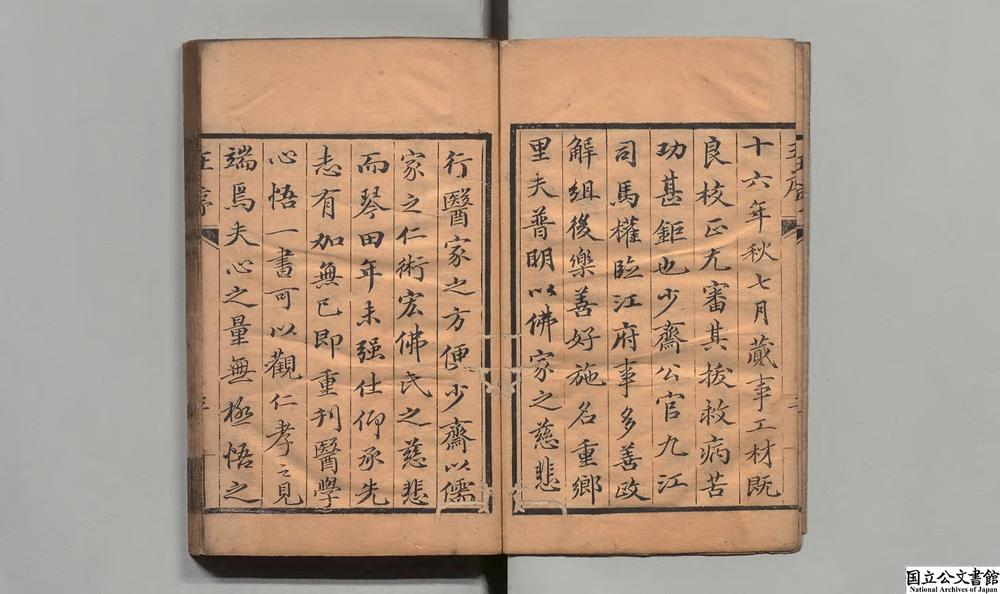 十六年秋七月蕆事工材既
良校正尤審其拔救病苦
功甚鉅也少齋公官九江
司馬權臨江府事多善政
解組後樂善好施名重鄉
里夫普明以佛家之慈悲
行醫家之方便少齋以儒
家之仁術宏佛氏之慈悲
而琴田年未强仕仰承先
志有加無已即重刊醫學
心悟一書可以觀仁孝之見
端焉夫心之量無極悟之
国立公文書館
National Archives of Japan